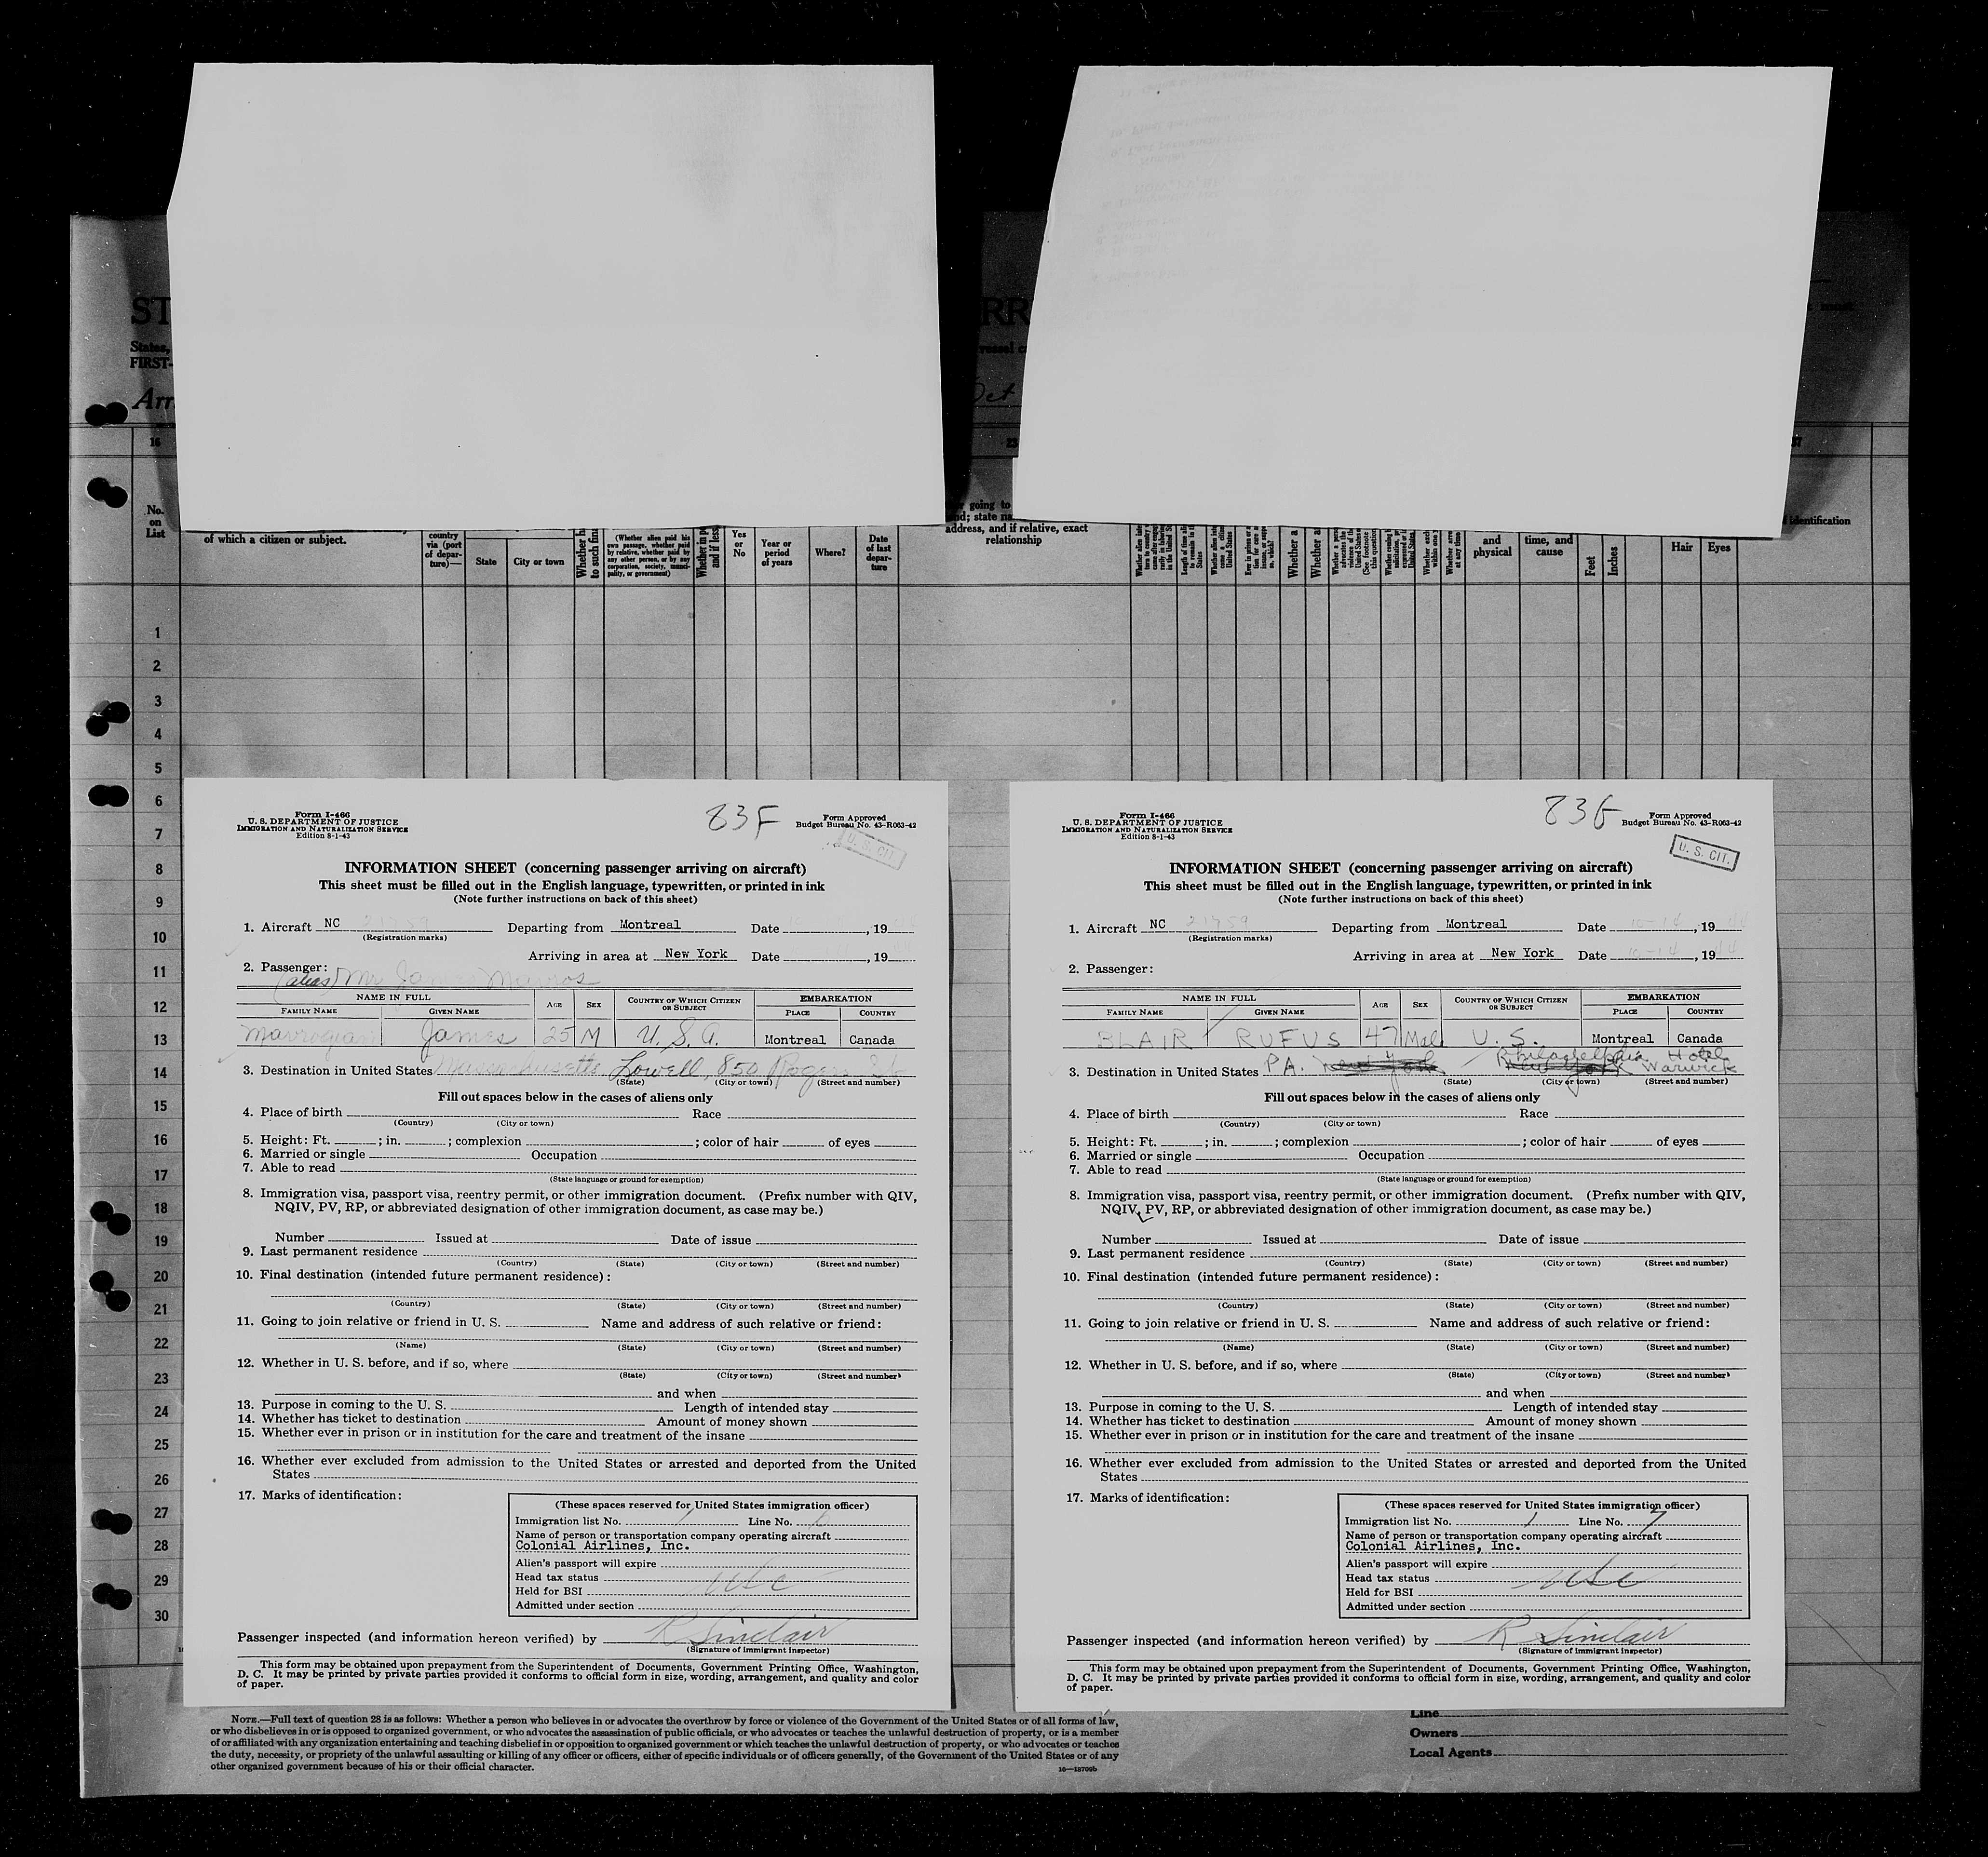 ST
RR
States,
FIRST-
Arr
Oct
16
23
37
No.
on
List
of which a citizen or subject.
country
via (port
of depar-
ture)—
State
City or town
(Whether alien paid his
own passage, whether paid
by relative, whether paid by
any other person, or by any
corporation, society, munici-
pality, or government)
Yes
or
No
Year or
period
of years
Where?
Date
of last
depar-
ture
going to
address, and if relative, exact
relationship
and
physical
time, and
cause
Feet
Inches
Hair
Eyes
identification
1
2
3
4
5
6
7
8
9
10
11
12
13
14
15
16
17
18
19
20
21
22
23
24
25
26
27
28
29
30
83F
Form I-466
U. S. DEPARTMENT OF JUSTICE
IMMIGRATION AND NATURALIZATION SERVICE
Edition 8-1-43
Form Approved
Budget Bureau No. 43-R063-42
U. S. CIT.
INFORMATION SHEET (concerning passenger arriving on aircraft)
This sheet must be filled out in the English language, typewritten, or printed in ink
(Note further instructions on back of this sheet)
1. Aircraft NC 21759 Departing from Montreal Date , 19
(Registration marks)
Arriving in area at New York Date , 19
2. Passenger:
(alias) Mr James Mavros
NAME IN FULL AGE SEX COUNTRY OF WHICH CITIZEN OR SUBJECT EMBARKATION
FAMILY NAME GIVEN NAME PLACE COUNTRY
James 25 M U. S. A. Montreal Canada
3. Destination in United States Massachusetts Lowell, 850 Rogers St
(State) (City or town) (Street and number)
Fill out spaces below in the cases of aliens only
4. Place of birth Race
(Country) (City or town)
5. Height: Ft. ; in. ; complexion ; color of hair of eyes
6. Married or single Occupation
7. Able to read
(State language or ground for exemption)
8. Immigration visa, passport visa, reentry permit, or other immigration document. (Prefix number with QIV,
NQIV, PV, RP, or abbreviated designation of other immigration document, as case may be.)
Number Issued at Date of issue
9. Last permanent residence
(Country) (State) (City or town) (Street and number)
10. Final destination (intended future permanent residence):
(Country) (State) (City or town) (Street and number)
11. Going to join relative or friend in U. S. Name and address of such relative or friend:
(Name) (State) (City or town) (Street and number)
12. Whether in U. S. before, and if so, where
(State) (City or town) (Street and number)
and when
13. Purpose in coming to the U. S. Length of intended stay
14. Whether has ticket to destination Amount of money shown
15. Whether ever in prison or in institution for the care and treatment of the insane
16. Whether ever excluded from admission to the United States or arrested and deported from the United
States
17. Marks of identification:
(These spaces reserved for United States immigration officer)
Immigration list No. 1 Line No.
Name of person or transportation company operating aircraft
Colonial Airlines, Inc.
Alien's passport will expire
Head tax status usc
Held for BSI
Admitted under section
Passenger inspected (and information hereon verified) by R Sinclair
(Signature of Immigrant Inspector)
This form may be obtained upon prepayment from the Superintendent of Documents, Government Printing Office, Washington,
D. C. It may be printed by private parties provided it conforms to official form in size, wording, arrangement, and quality and color
of paper.
83F
Form I-466
U. S. DEPARTMENT OF JUSTICE
IMMIGRATION AND NATURALIZATION SERVICE
Edition 8-1-43
Form Approved
Budget Bureau No. 43-R063-42
U. S. CIT.
INFORMATION SHEET (concerning passenger arriving on aircraft)
This sheet must be filled out in the English language, typewritten, or printed in ink
(Note further instructions on back of this sheet)
1. Aircraft NC 21759 Departing from Montreal Date 10-14, 19
(Registration marks)
Arriving in area at New York Date 10-14, 19
2. Passenger:
NAME IN FULL AGE SEX COUNTRY OF WHICH CITIZEN OR SUBJECT EMBARKATION
FAMILY NAME GIVEN NAME PLACE COUNTRY
BLAIR RUFUS 47 Mal U. S. Montreal Canada
Philadelphia Hotel
3. Destination in United States PA. New York New York Warwick
(State) (City or town) (Street and number)
Fill out spaces below in the cases of aliens only
4. Place of birth Race
(Country) (City or town)
5. Height: Ft. ; in. ; complexion ; color of hair of eyes
6. Married or single Occupation
7. Able to read
(State language or ground for exemption)
8. Immigration visa, passport visa, reentry permit, or other immigration document. (Prefix number with QIV,
NQIV, PV, RP, or abbreviated designation of other immigration document, as case may be.)
Number Issued at Date of issue
9. Last permanent residence
(Country) (State) (City or town) (Street and number)
10. Final destination (intended future permanent residence):
(Country) (State) (City or town) (Street and number)
11. Going to join relative or friend in U. S. Name and address of such relative or friend:
(Name) (State) (City or town) (Street and number)
12. Whether in U. S. before, and if so, where
(State) (City or town) (Street and number)
and when
13. Purpose in coming to the U. S. Length of intended stay
14. Whether has ticket to destination Amount of money shown
15. Whether ever in prison or in institution for the care and treatment of the insane
16. Whether ever excluded from admission to the United States or arrested and deported from the United
States
17. Marks of identification:
(These spaces reserved for United States immigration officer)
Immigration list No. 1 Line No. 7
Name of person or transportation company operating aircraft
Colonial Airlines, Inc.
Alien's passport will expire
Head tax status usc
Held for BSI
Admitted under section
Passenger inspected (and information hereon verified) by R Sinclair
(Signature of Immigrant Inspector)
This form may be obtained upon prepayment from the Superintendent of Documents, Government Printing Office, Washington,
D. C. It may be printed by private parties provided it conforms to official form in size, wording, arrangement, and quality and color
of paper.
NOTE.—Full text of question 28 is as follows: Whether a person who believes in or advocates the overthrow by force or violence of the Government of the United States or of all forms of law,
or who disbelieves in or is opposed to organized government, or who advocates the assassination of public officials, or who advocates or teaches the unlawful destruction of property, or is a member
of or affiliated with any organization entertaining and teaching disbelief in or opposition to organized government or which teaches the unlawful destruction of property, or who advocates or teaches
the duty, necessity, or propriety of the unlawful assaulting or killing of any officer or officers, either of specific individuals or of officers generally, of the Government of the United States or of any
other organized government because of his or their official character.
16—18709b
Line
Owners
Local Agents